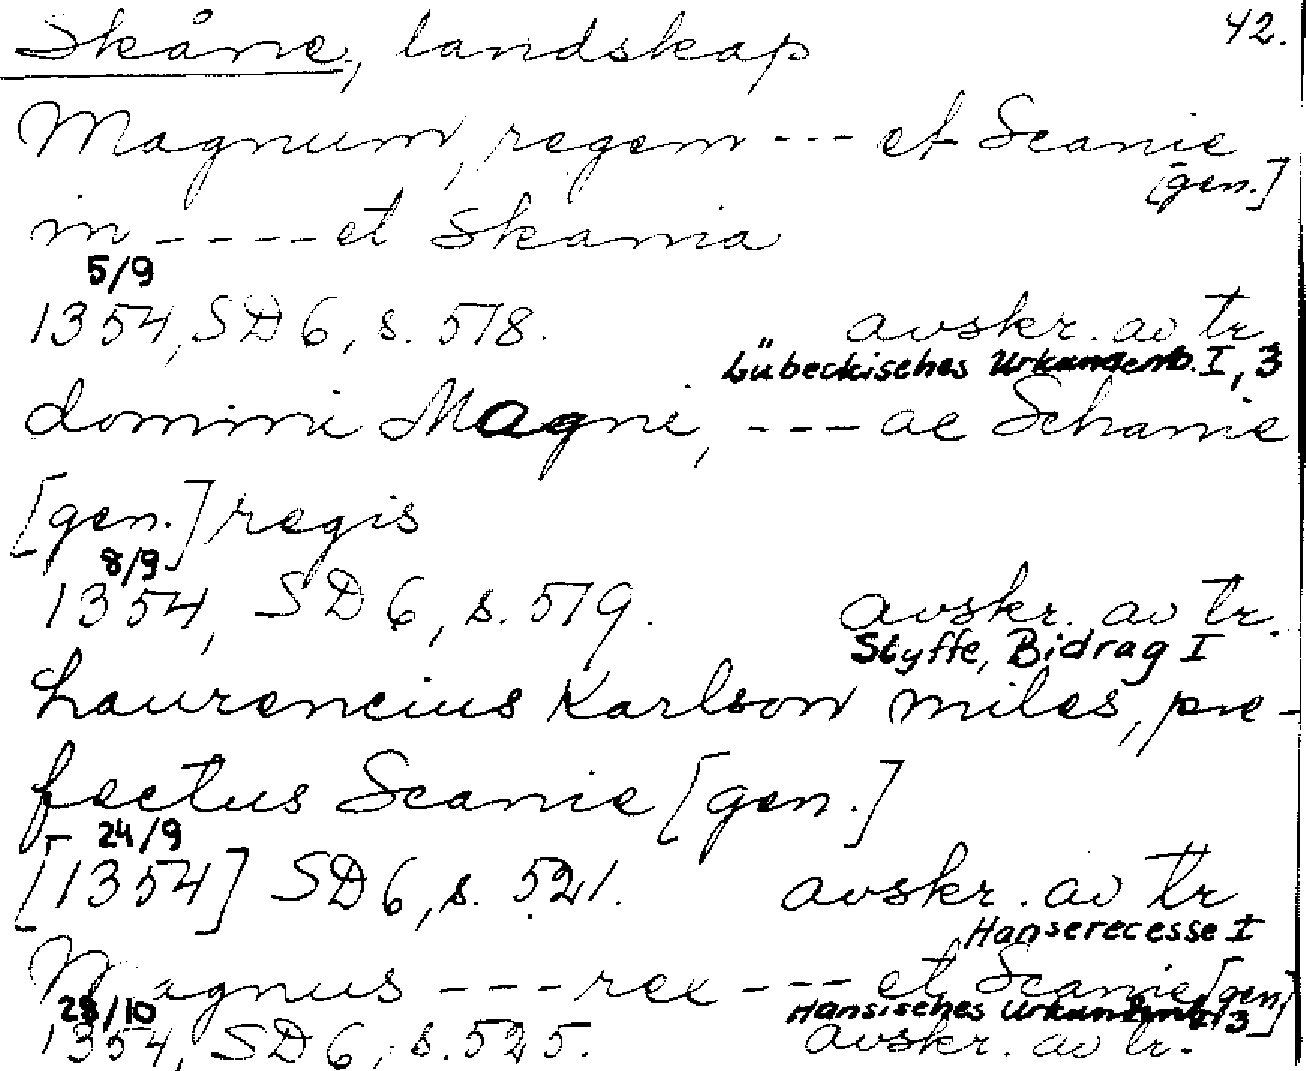 Skåne, landskap 42.
Magnum, regem --- et Scanie
[gen.]
in ---- et Skania
5/9
1354, SD 6, s. 518. avskr. av tr.
Lübeckisches Urkundenb. I, 3
domini Magni, --- ac Schanie
[gen.] regis
8/9
1354, SD 6, s. 519. avskr. av tr.
Styffe, Bidrag I
Laurencius Karlson miles, pre-
fectus Scanie [gen.]
24/9
[1354] SD 6, s. 521. avskr. av tr
Hanserecesse I
Magnus --- rex --- et Scanie [gen]
/10 Hansisches 3
1354, SD 6, s. 525. avskr. av tr.